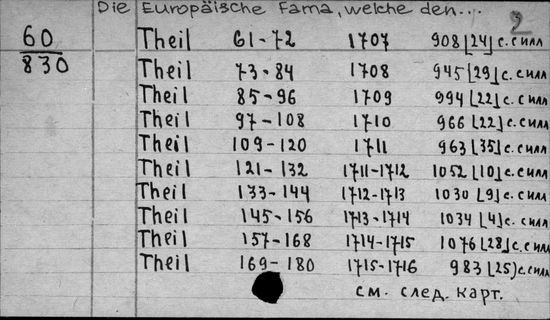 Die Europäische Fama, welche den...
2
60
830
Theil 61-72 1707 908 [24] с. с илл
Theil 73-84 1708 945 [29] с. с илл
Theil 85-96 1709 994 [22] с. с илл
Theil 97-108 1710 966 [22] с. с илл
Theil 109-120 1711 963 [35] с. с илл
Theil 121-132 1711-1712 1052 [10] с. с илл
Theil 133-144 1712-1713 1030 [9] с. с илл
Theil 145-156 1713-1714 1034 [4] с. с илл
Theil 157-168 1714-1715 1076 [28] с. с илл
Theil 169-180 1715-1716 983 [25] с. с илл
см. след. карт.